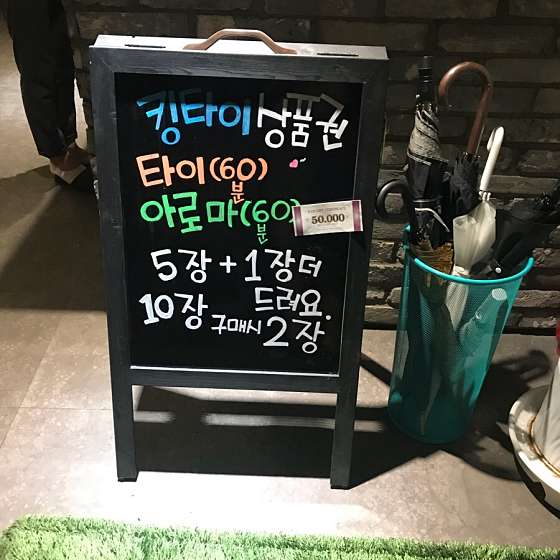 킹타이 상품권
타이(60분)
아로마(60분)
50.000
5장 + 1장 더
드려요.
10장 구매시 2장